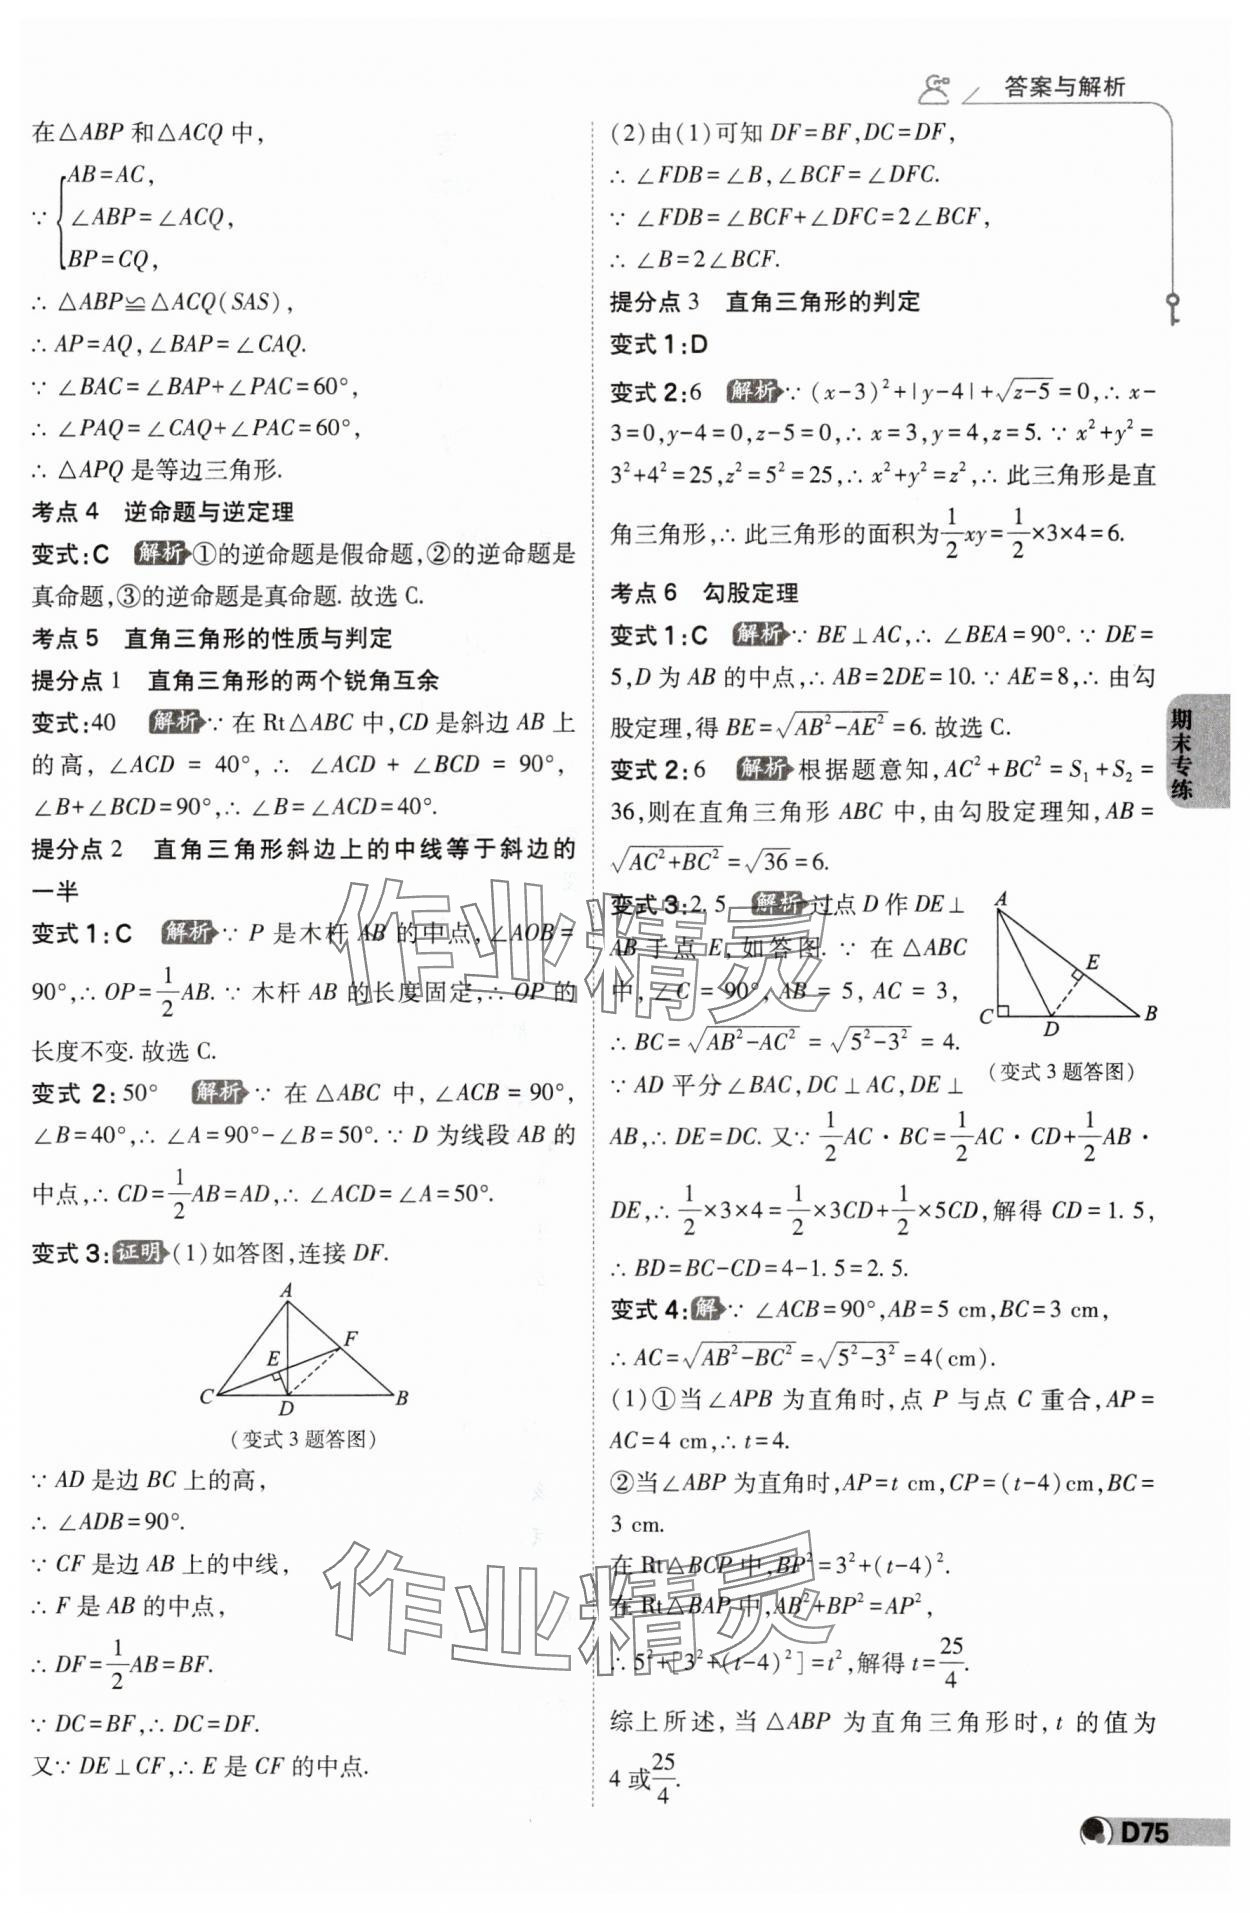 答案与解析
在△ABP 和△ACQ 中，
∵ {AB=AC,
∠ABP=∠ACQ,
BP=CQ,
∴ △ABP≌△ACQ(SAS),
∴ AP=AQ,∠BAP=∠CAQ.
∵ ∠BAC=∠BAP+∠PAC=60°,
∴ ∠PAQ=∠CAQ+∠PAC=60°,
∴ △APQ 是等边三角形.
考点 4 逆命题与逆定理
变式:C 解析 ①的逆命题是假命题,②的逆命题是
真命题,③的逆命题是真命题. 故选 C.
考点 5 直角三角形的性质与判定
提分点 1 直角三角形的两个锐角互余
变式:40 解析 ∵ 在 Rt△ABC 中,CD 是斜边 AB 上
的高, ∠ACD = 40°, ∴ ∠ACD + ∠BCD = 90°,
∠B+∠BCD=90°,∴ ∠B=∠ACD=40°.
提分点 2 直角三角形斜边上的中线等于斜边的
一半
变式 1:C 解析 ∵ P 是木杆 AB 的中点,∠AOB=
90°,∴ OP=1/2AB. ∵ 木杆 AB 的长度固定,∴ OP 的
长度不变. 故选 C.
变式 2:50° 解析 ∵ 在△ABC 中,∠ACB=90°,
∠B=40°,∴ ∠A=90°-∠B=50°. ∵ D 为线段 AB 的
中点,∴ CD=1/2AB=AD,∴ ∠ACD=∠A=50°.
变式 3:证明 (1)如答图,连接 DF.
A
F
E
C
D
B
(变式 3 题答图)
∵ AD 是边 BC 上的高,
∴ ∠ADB=90°.
∵ CF 是边 AB 上的中线,
∴ F 是 AB 的中点,
∴ DF=1/2AB=BF.
∵ DC=BF,∴ DC=DF.
又∵ DE⊥CF,∴ E 是 CF 的中点.
(2)由(1)可知 DF=BF,DC=DF,
∴ ∠FDB=∠B,∠BCF=∠DFC.
∵ ∠FDB=∠BCF+∠DFC=2∠BCF,
∴ ∠B=2∠BCF.
提分点 3 直角三角形的判定
变式 1:D
变式 2:6 解析 ∵ (x-3)²+|y-4|+√(z-5)=0,∴ x-
3=0,y-4=0,z-5=0,∴ x=3,y=4,z=5. ∵ x²+y²=
3²+4²=25,z²=5²=25,∴ x²+y²=z²,∴ 此三角形是直
角三角形,∴ 此三角形的面积为1/2xy=1/2×3×4=6.
考点 6 勾股定理
变式 1:C 解析 ∵ BE⊥AC,∴ ∠BEA=90°. ∵ DE=
5,D 为 AB 的中点,∴ AB=2DE=10. ∵ AE=8,∴ 由勾
股定理,得 BE=√(AB²-AE²)=6. 故选 C.
变式 2:6 解析 根据题意知,AC²+BC²=S₁+S₂=
36,则在直角三角形 ABC 中,由勾股定理知,AB=
√(AC²+BC²)=√36=6.
变式 3:2.5 解析 过点 D 作 DE⊥
AB 于点 E,如答图. ∵ 在△ABC
中,∠C = 90°, AB = 5, AC = 3,
∴ BC=√(AB²-AC²)=√(5²-3²)=4.
∵ AD 平分∠BAC,DC⊥AC,DE⊥
A
E
C
D
B
(变式 3 题答图)
AB,∴ DE=DC. 又∵ 1/2AC·BC=1/2AC·CD+1/2AB·
DE,∴ 1/2×3×4=1/2×3CD+1/2×5CD,解得 CD=1.5,
∴ BD=BC-CD=4-1.5=2.5.
变式 4:解 ∵ ∠ACB=90°,AB=5 cm,BC=3 cm,
∴ AC=√(AB²-BC²)=√(5²-3²)=4(cm).
(1)①当∠APB 为直角时,点 P 与点 C 重合,AP=
AC=4 cm,∴ t=4.
②当∠ABP 为直角时,AP=t cm,CP=(t-4)cm,BC=
3 cm.
在 Rt△BCP 中,BP²=3²+(t-4)².
在 Rt△BAP 中,AB²+BP²=AP²,
∴ 5²+[3²+(t-4)²]=t²,解得 t=25/4.
综上所述,当△ABP 为直角三角形时,t 的值为
4 或25/4.
期末专练
D75
作业精灵
作业精灵